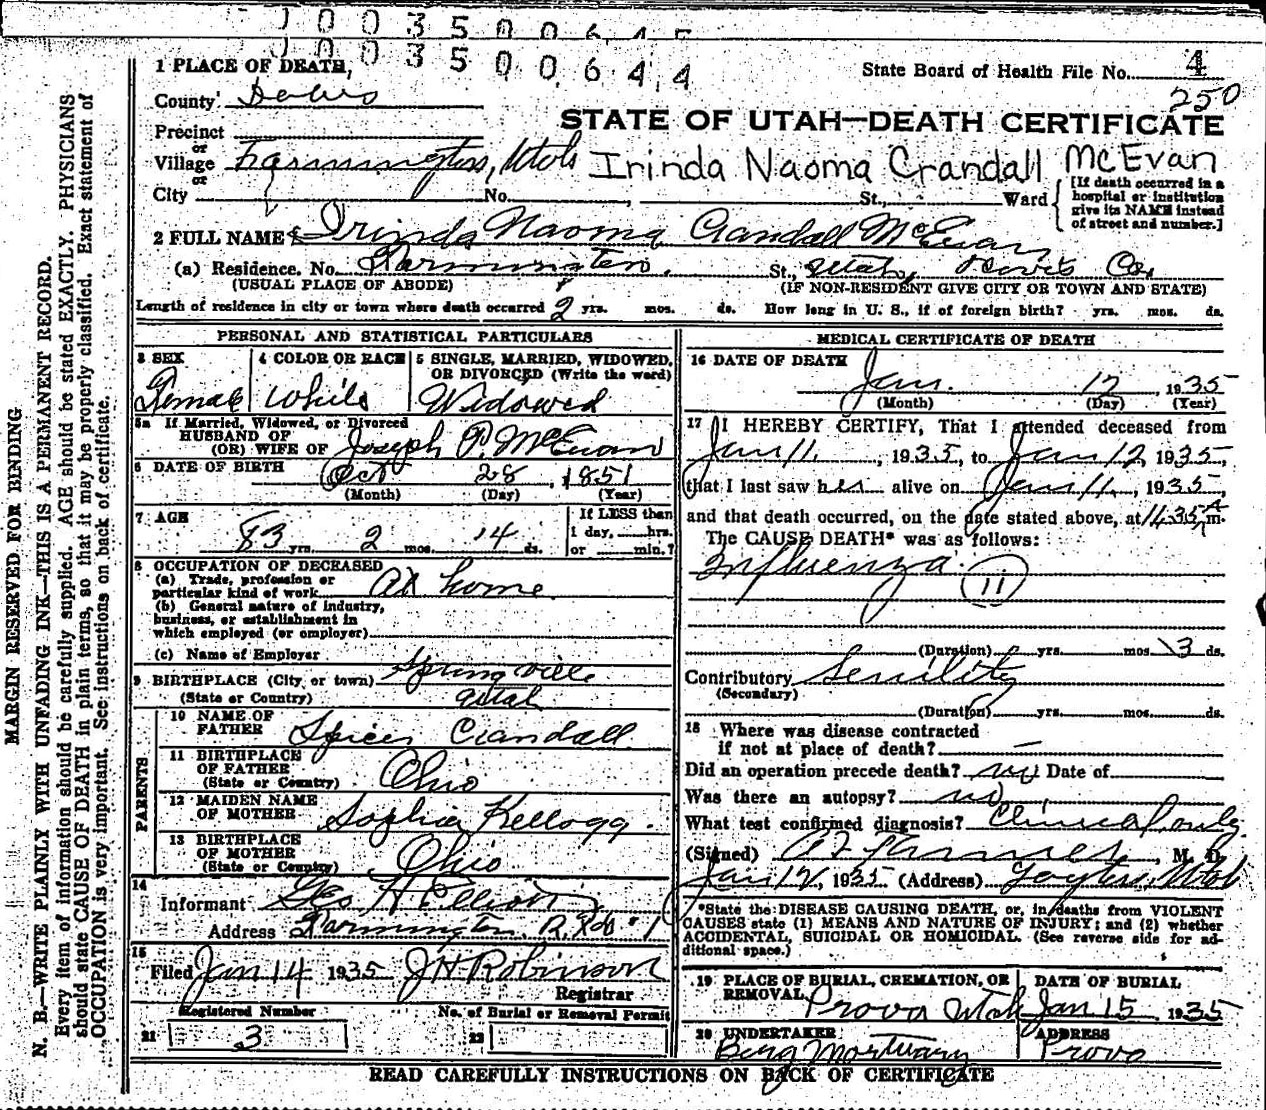 1 0 0 3 5 0 0 6 4 5
1 0 0 3 5 0 0 6 4 4
1 PLACE OF DEATH,
State Board of Health File No. 4
250
County Davis
STATE OF UTAH—DEATH CERTIFICATE
Precinct
or
Village Farmington, Utah
Irinda Naoma Crandall McEvan
or
City No. , St., Ward
[If death occurred in a
hospital or institution
give its NAME instead
of street and number.]
2 FULL NAME Irinda Naoma Crandall McEwan
(a) Residence. No. Farmington. St., Utah, Davis Co.
(USUAL PLACE OF ABODE) (IF NON-RESIDENT GIVE CITY OR TOWN AND STATE)
Length of residence in city or town where death occurred 2 yrs. mos. ds. How long in U. S., if of foreign birth? yrs. mos. ds.
PERSONAL AND STATISTICAL PARTICULARS
3 SEX
Female
4 COLOR OR RACE
White
5 SINGLE, MARRIED, WIDOWED,
OR DIVORCED (Write the word)
Widowed
5a If Married, Widowed, or Divorced
HUSBAND OF
(OR) WIFE OF Joseph P. McEwan
6 DATE OF BIRTH Oct 28, 1851
(Month) (Day) (Year)
7 AGE
83 yrs. 2 mos. 14 ds.
If LESS than
1 day, hrs.
or min.?
8 OCCUPATION OF DECEASED
(a) Trade, profession or
particular kind of work At home.
(b) General nature of industry,
business, or establishment in
which employed (or employer)
(c) Name of Employer
9 BIRTHPLACE (City, or town) Springville
(State or Country) Utah
PARENTS
10 NAME OF
FATHER Spicer Crandall
11 BIRTHPLACE
OF FATHER
(State or Country) Ohio
12 MAIDEN NAME
OF MOTHER Sophia Kellogg.
13 BIRTHPLACE
OF MOTHER
(State or Country) Ohio
14
Informant Geo H Elliott
Address Farmington, R.F.D. 1
15
Filed Jan 14 1935 J H Robinson
Registrar
Registered Number No. of Burial or Removal Permit
21 3 22
MEDICAL CERTIFICATE OF DEATH
16 DATE OF DEATH
Jan. 12, 1935
(Month) (Day) (Year)
17 I HEREBY CERTIFY, That I attended deceased from
Jan 11, 1935, to Jan 12, 1935,
that I last saw her alive on Jan 11, 1935,
and that death occurred, on the date stated above, at 1:35 A m.
The CAUSE DEATH* was as follows:
Influenza. 11
(Duration) yrs. mos. 3 ds.
Contributory Senility
(Secondary)
(Duration) yrs. mos. ds.
18 Where was disease contracted
if not at place of death? —
Did an operation precede death? no Date of
Was there an autopsy? no
What test confirmed diagnosis? Clinical only
(Signed) M. D.
Jan 12, 1935 (Address) Layton, Utah
*State the DISEASE CAUSING DEATH, or, in deaths from VIOLENT
CAUSES state (1) MEANS AND NATURE OF INJURY; and (2) whether
ACCIDENTAL, SUICIDAL OR HOMICIDAL. (See reverse side for ad-
ditional space.)
19 PLACE OF BURIAL, CREMATION, OR
REMOVAL Provo Utah
DATE OF BURIAL
Jan 15, 1935
20 UNDERTAKER
Berg Mortuary
ADDRESS
Provo
READ CAREFULLY INSTRUCTIONS ON BACK OF CERTIFICATE
MARGIN RESERVED FOR BINDING
N. B.—WRITE PLAINLY WITH UNFADING INK—THIS IS A PERMANENT RECORD.
Every item of information should be carefully supplied. AGE should be stated EXACTLY. PHYSICIANS
should state CAUSE OF DEATH in plain terms, so that it may be properly classified. Exact statement of
OCCUPATION is very important. See instructions on back of certificate.